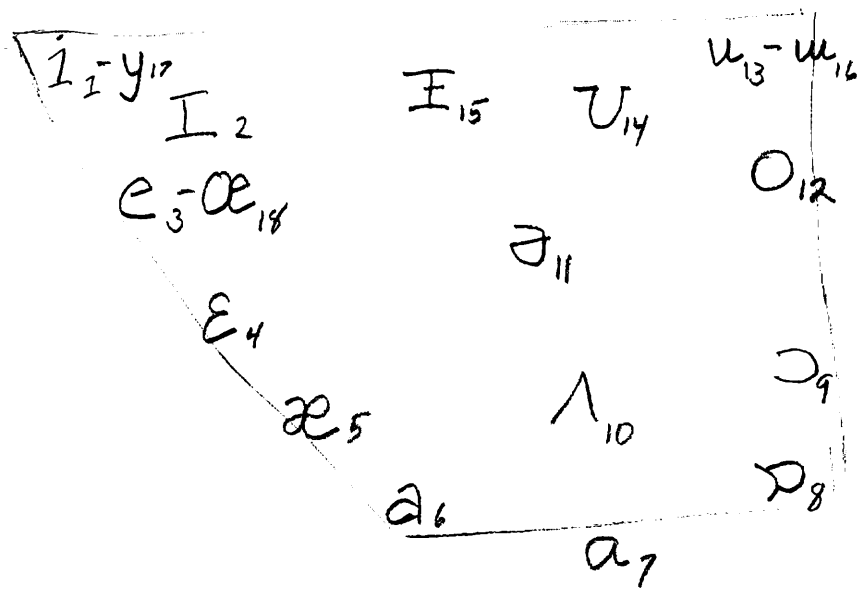 i₁-y₁₇ I₂ Ɪ₁₅ ʊ₁₄ u₁₃-ɯ₁₆
e₃-œ₁₈ o₁₂
ə₁₁
ɛ₄
æ₅ ʌ₁₀ ɔ₉
a₆ ɒ₈
ɑ₇